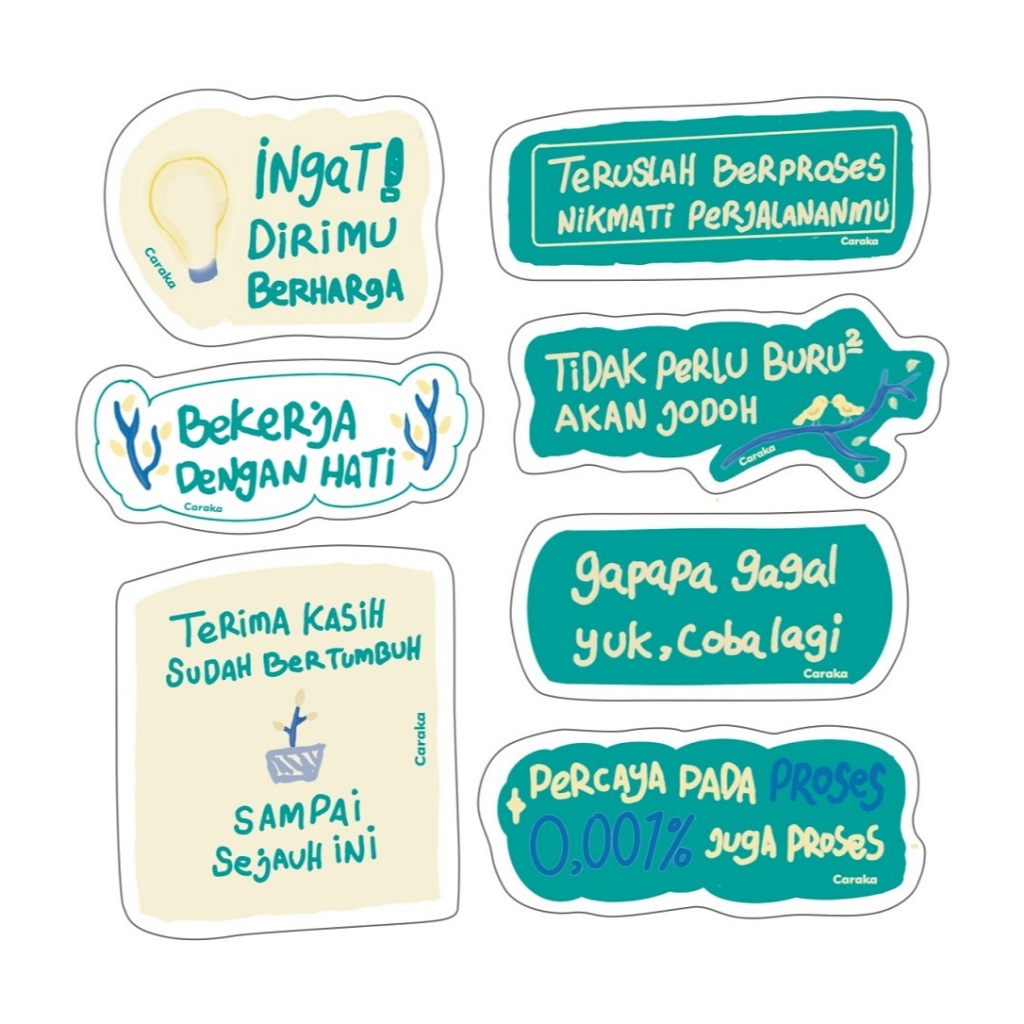 iNgaT!
DiRiMU
BERHARgA
Caraka
TERUSLAH BERPROSES
NiKMATi PERJALANANMU
Caraka
BEKERJA
DENGAN HATi
Caraka
TiDAK PERLU BURU²
AKAN JODOH
Caraka
TERiMA KASiH
SUDAH BERTUMBUH
Caraka
SAMPAi
SEJAUH iNi
gapapa gagal
yuk, coba lagi
Caraka
PERCAYA PADA PROSES
0,001% JUGA PROSES
Caraka